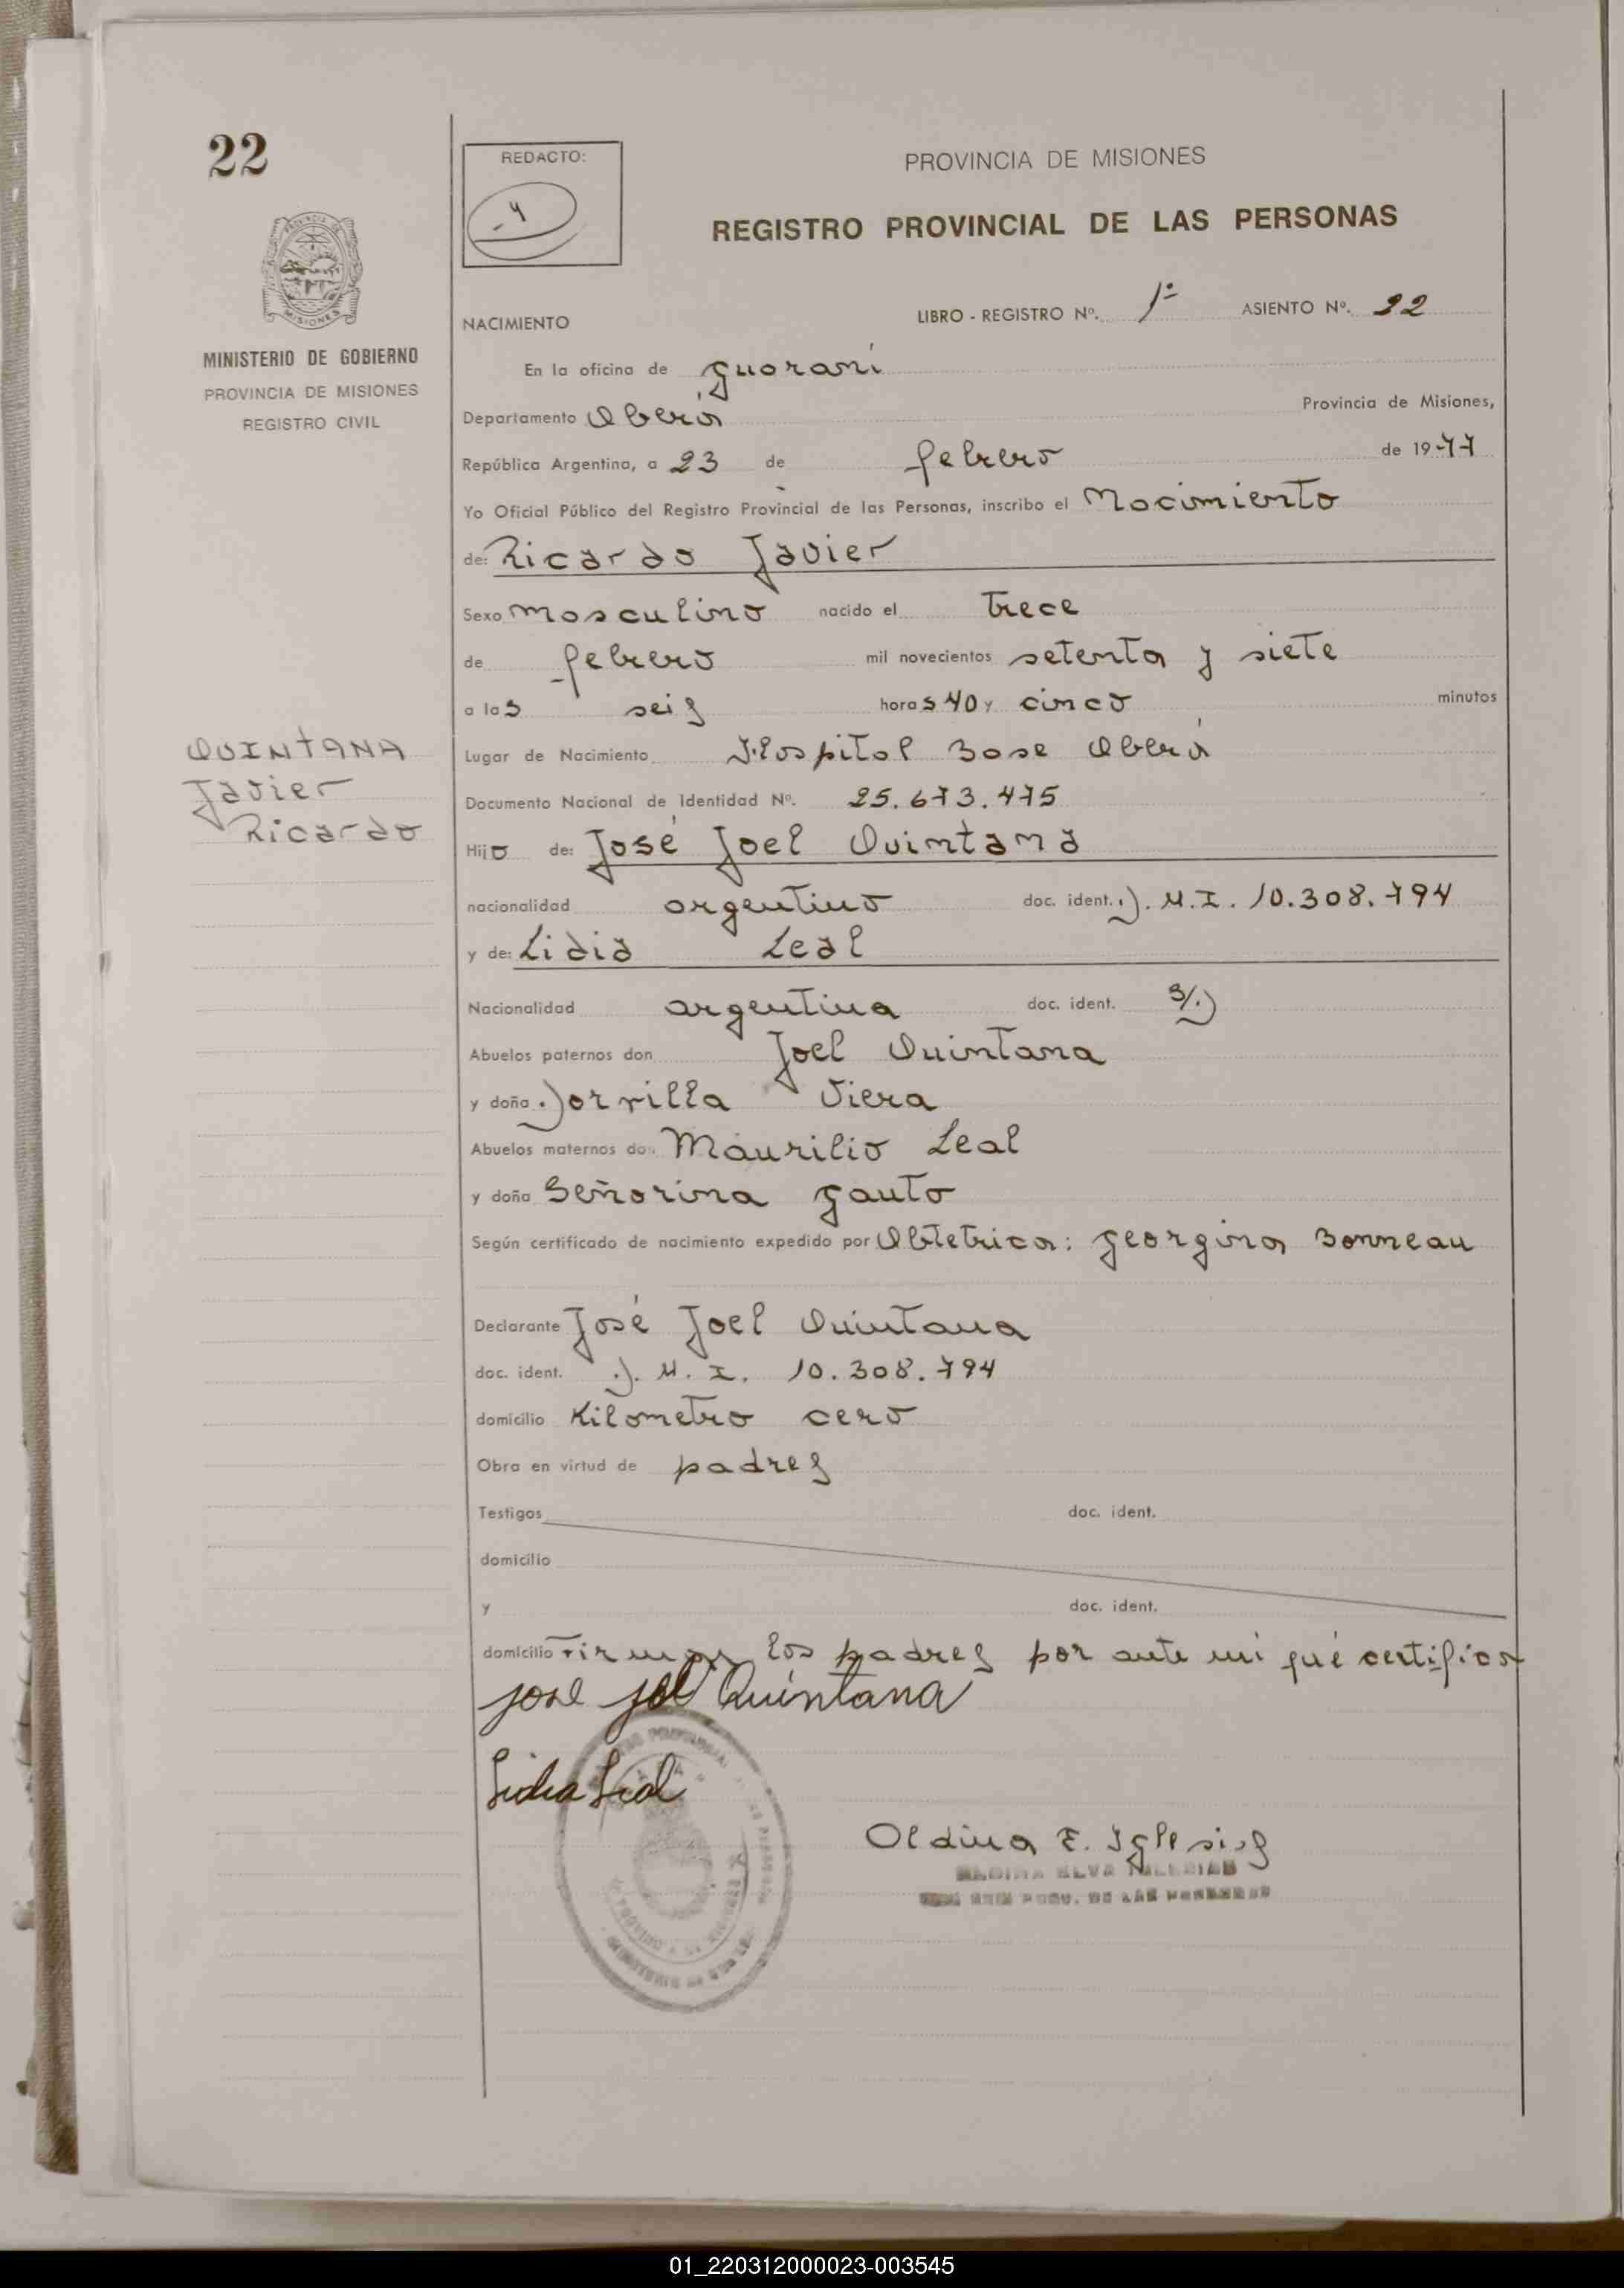 22
REDACTO:
PROVINCIA DE MISIONES
REGISTRO PROVINCIAL DE LAS PERSONAS
MISIONES
MINISTERIO DE GOBIERNO
PROVINCIA DE MISIONES
REGISTRO CIVIL
NACIMIENTO
LIBRO - REGISTRO Nº. 1º ASIENTO Nº. 22
En la oficina de Guaraní
Departamento Oberá Provincia de Misiones,
República Argentina, a 23 de febrero de 1977
Yo Oficial Público del Registro Provincial de las Personas, inscribo el Nacimiento
de: Ricardo Javier
Sexo masculino nacido el trece
de febrero mil novecientos setenta y siete
a las seis horas 40 y cinco minutos
Lugar de Nacimiento Hospital Base Oberá
Documento Nacional de Identidad Nº. 25.673.475
QUINTANA
Javier
Ricardo
Hijo de: José Joel Quintana
nacionalidad argentino doc. ident. D. N. I. 10.308.794
y de: Lidia Leal
Nacionalidad argentina doc. ident. S/D
Abuelos paternos don Joel Quintana
y doña Viera
Abuelos maternos don Maurilio Leal
y doña Señorina Gauto
Según certificado de nacimiento expedido por Obtetrica: Georgina Bonneau
Declarante José Joel Quintana
doc. ident. D. N. I. 10.308.794
domicilio Kilometro cero
Obra en virtud de padres
Testigos doc. ident.
domicilio
y doc. ident.
domicilio Firman los padres por ante mi qué certifico
jose joel Quintana
Lidia Leal
Oldina E. Iglesias
01_220312000023-003545